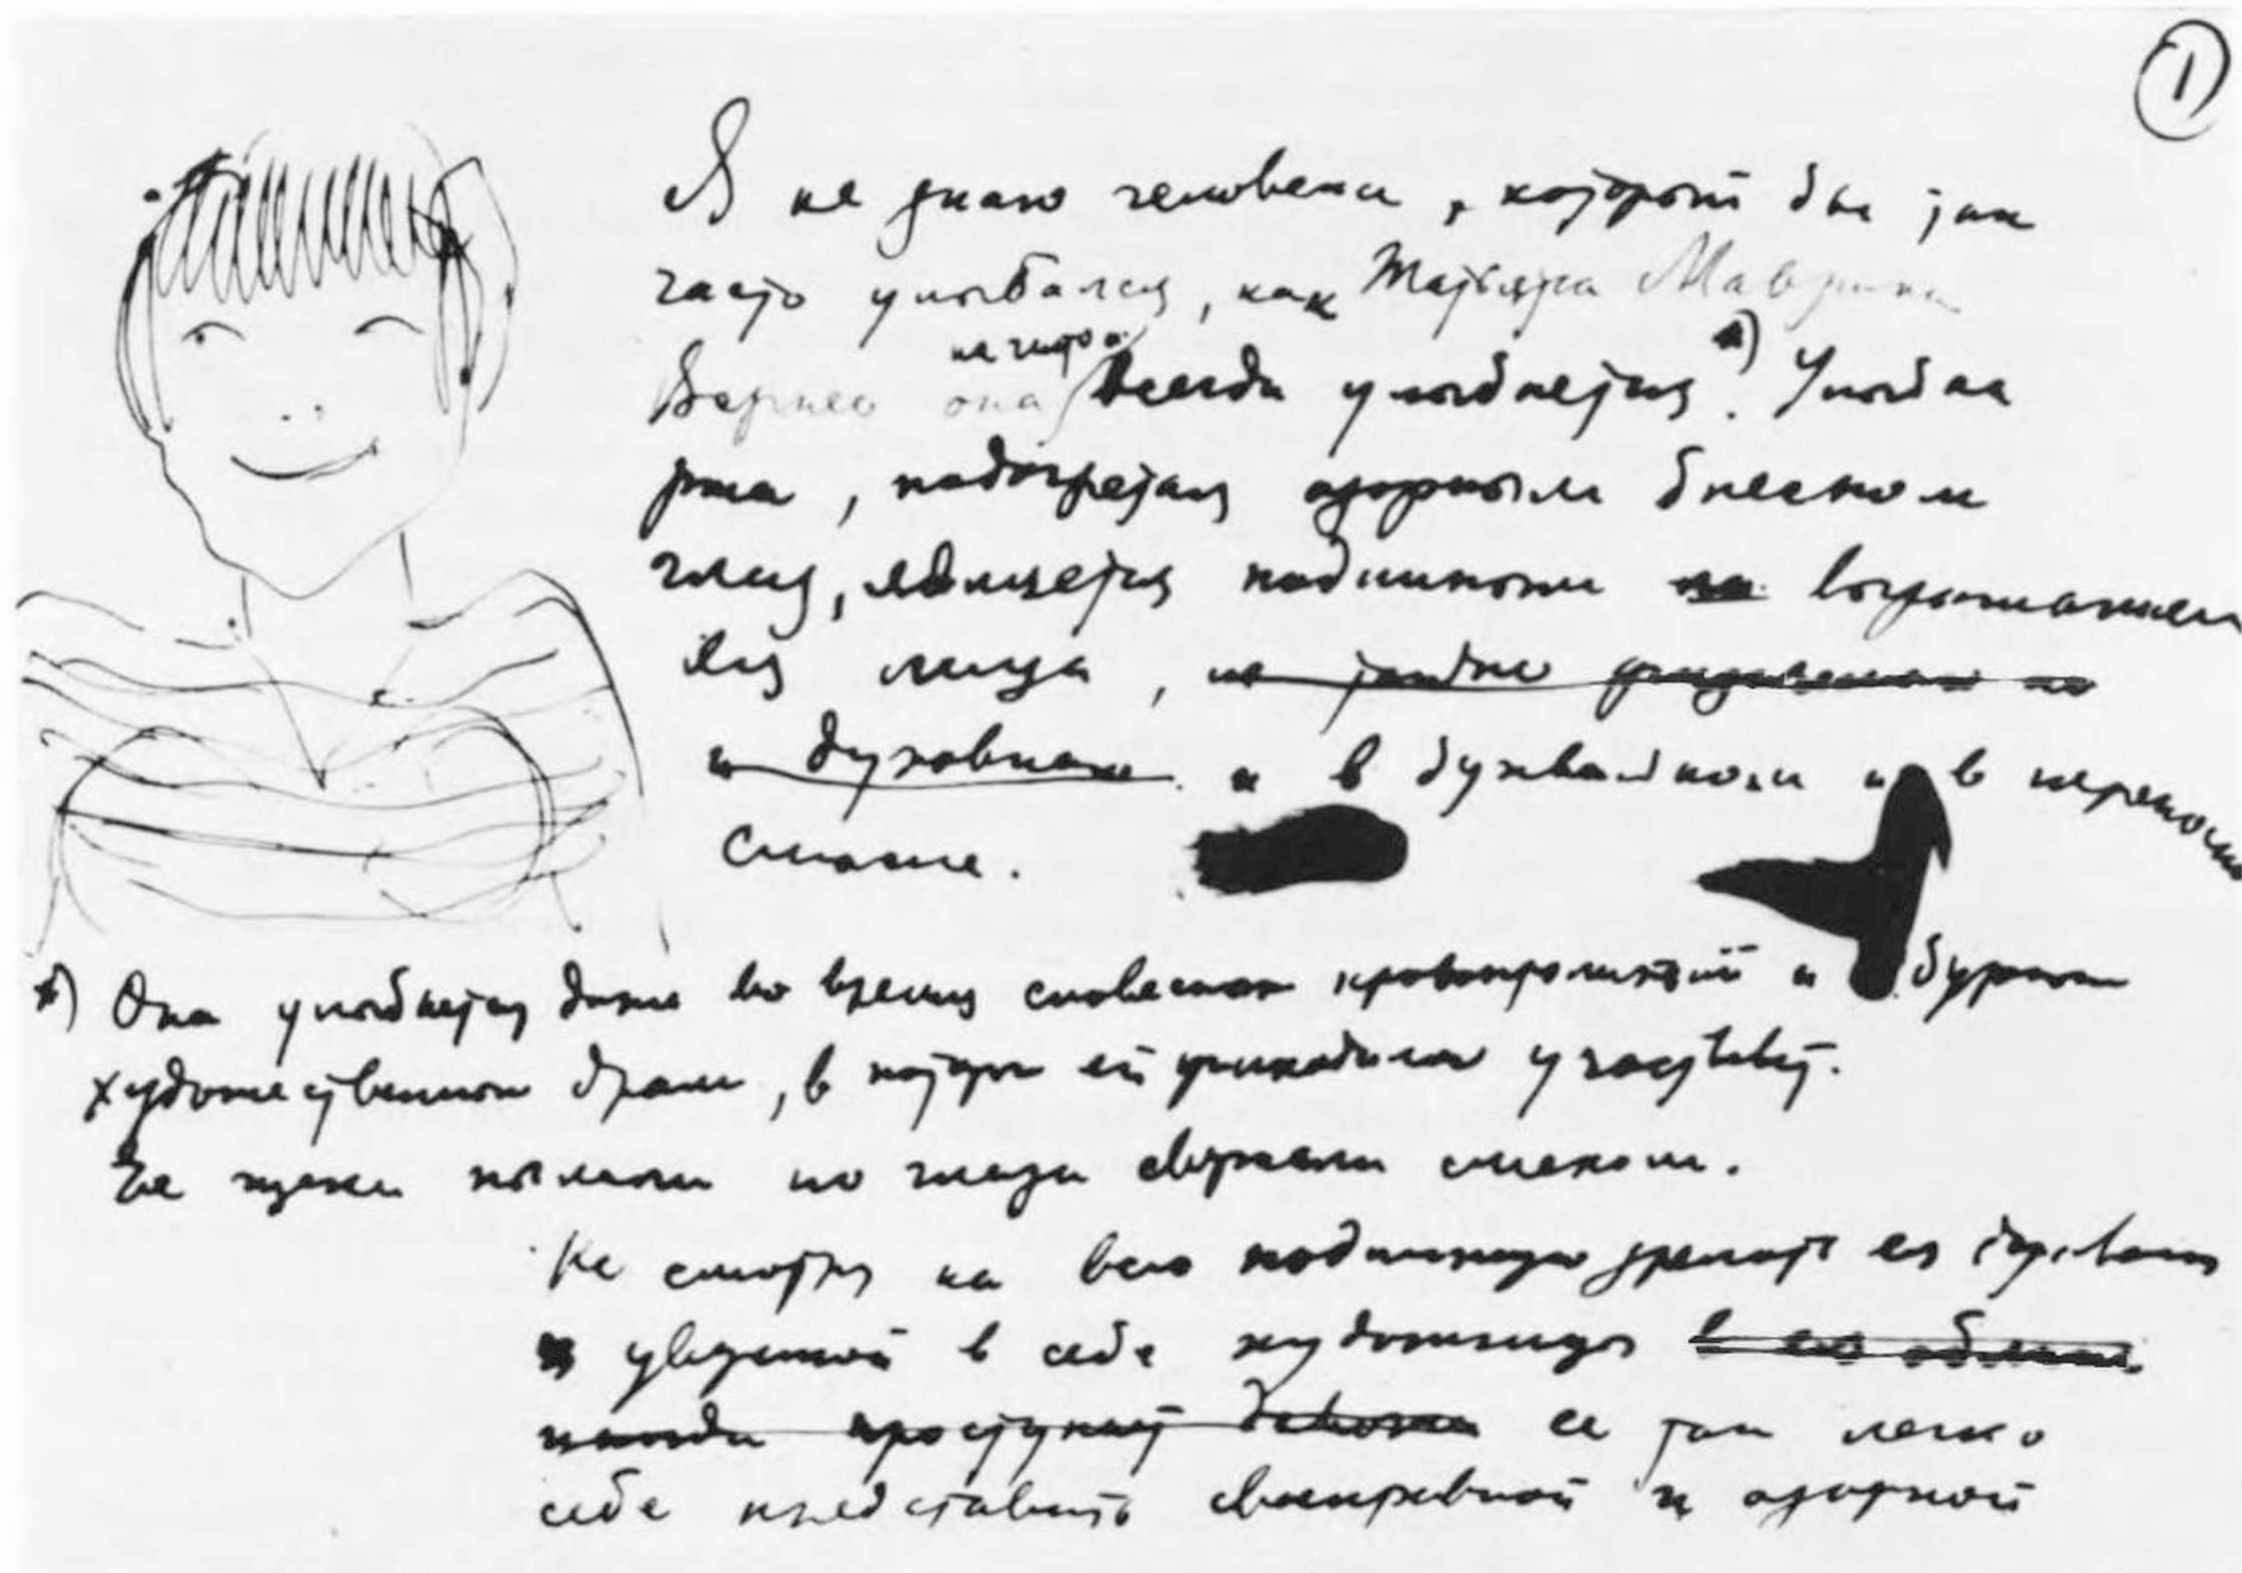 1
Я не знаю человека, который бы так
часто улыбался, как Татьяна Маврина
Вернее она всегда улыбается *). Улыбка
рта, подогретая озорным блеском
глаз, является подлинным выражением
ея лица, не только физическим но
и духовным и в буквальном и в переносном
смысле.
*) Она улыбается даже во время словесных кровопролитий и бурных
художественных драм, в которых ей приходилось участвовать.
Ее щеки пылали но глаза сверкали смехом.
Не смотря на всю подлинную зрелость ея
уверенной в себе художницы в ея облике
иногда проступает девочка ее так легко
себе представить своенравной и озорной